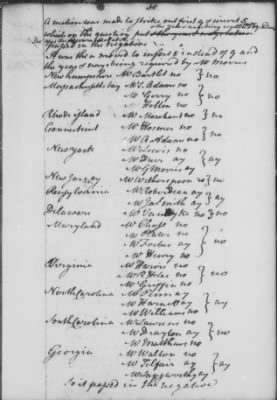 A motion was made to strike out first 9 of insert 8
which on the question put
passed in the negative
It was then moved to insert 8 instead of 9 and
the yeas & nays being required by Mr Morris
New hampshire Mr Bartlet no } no
Massachusetts bay Mr S. Adams no
Mr Gerry no } no
Mr Holten no
Rhode island Mr Marchant no } no
Connecticut Mr Hosmer no
Mr A Adams no } no
New york Mr Lewis no
Mr Duer ay } ay
Mr G Morris ay
New Jersey Mr Witherspoon no } no
Pensylvania Mr Roberdeau ay
Mr Ja Smith ay } ay
Delaware Mr Van Dyke no } no
Maryland Mr Chase no
Mr Plater no
Mr Forbes ay } no
Mr Henry no
Virginia Mr Harvie no
Mr R H Lee no } no
Mr Griffin no
North Carolina Mr Penn ay
Mr Harnett ay } ay
Mr Williams no
South Carolina Mr Laurens no
Mr Drayton ay } no
Mr Matthews no
Georgia Mr Walton no
Mr Telfair ay } ay
Mr Langworthy ay
So it passed in the negative